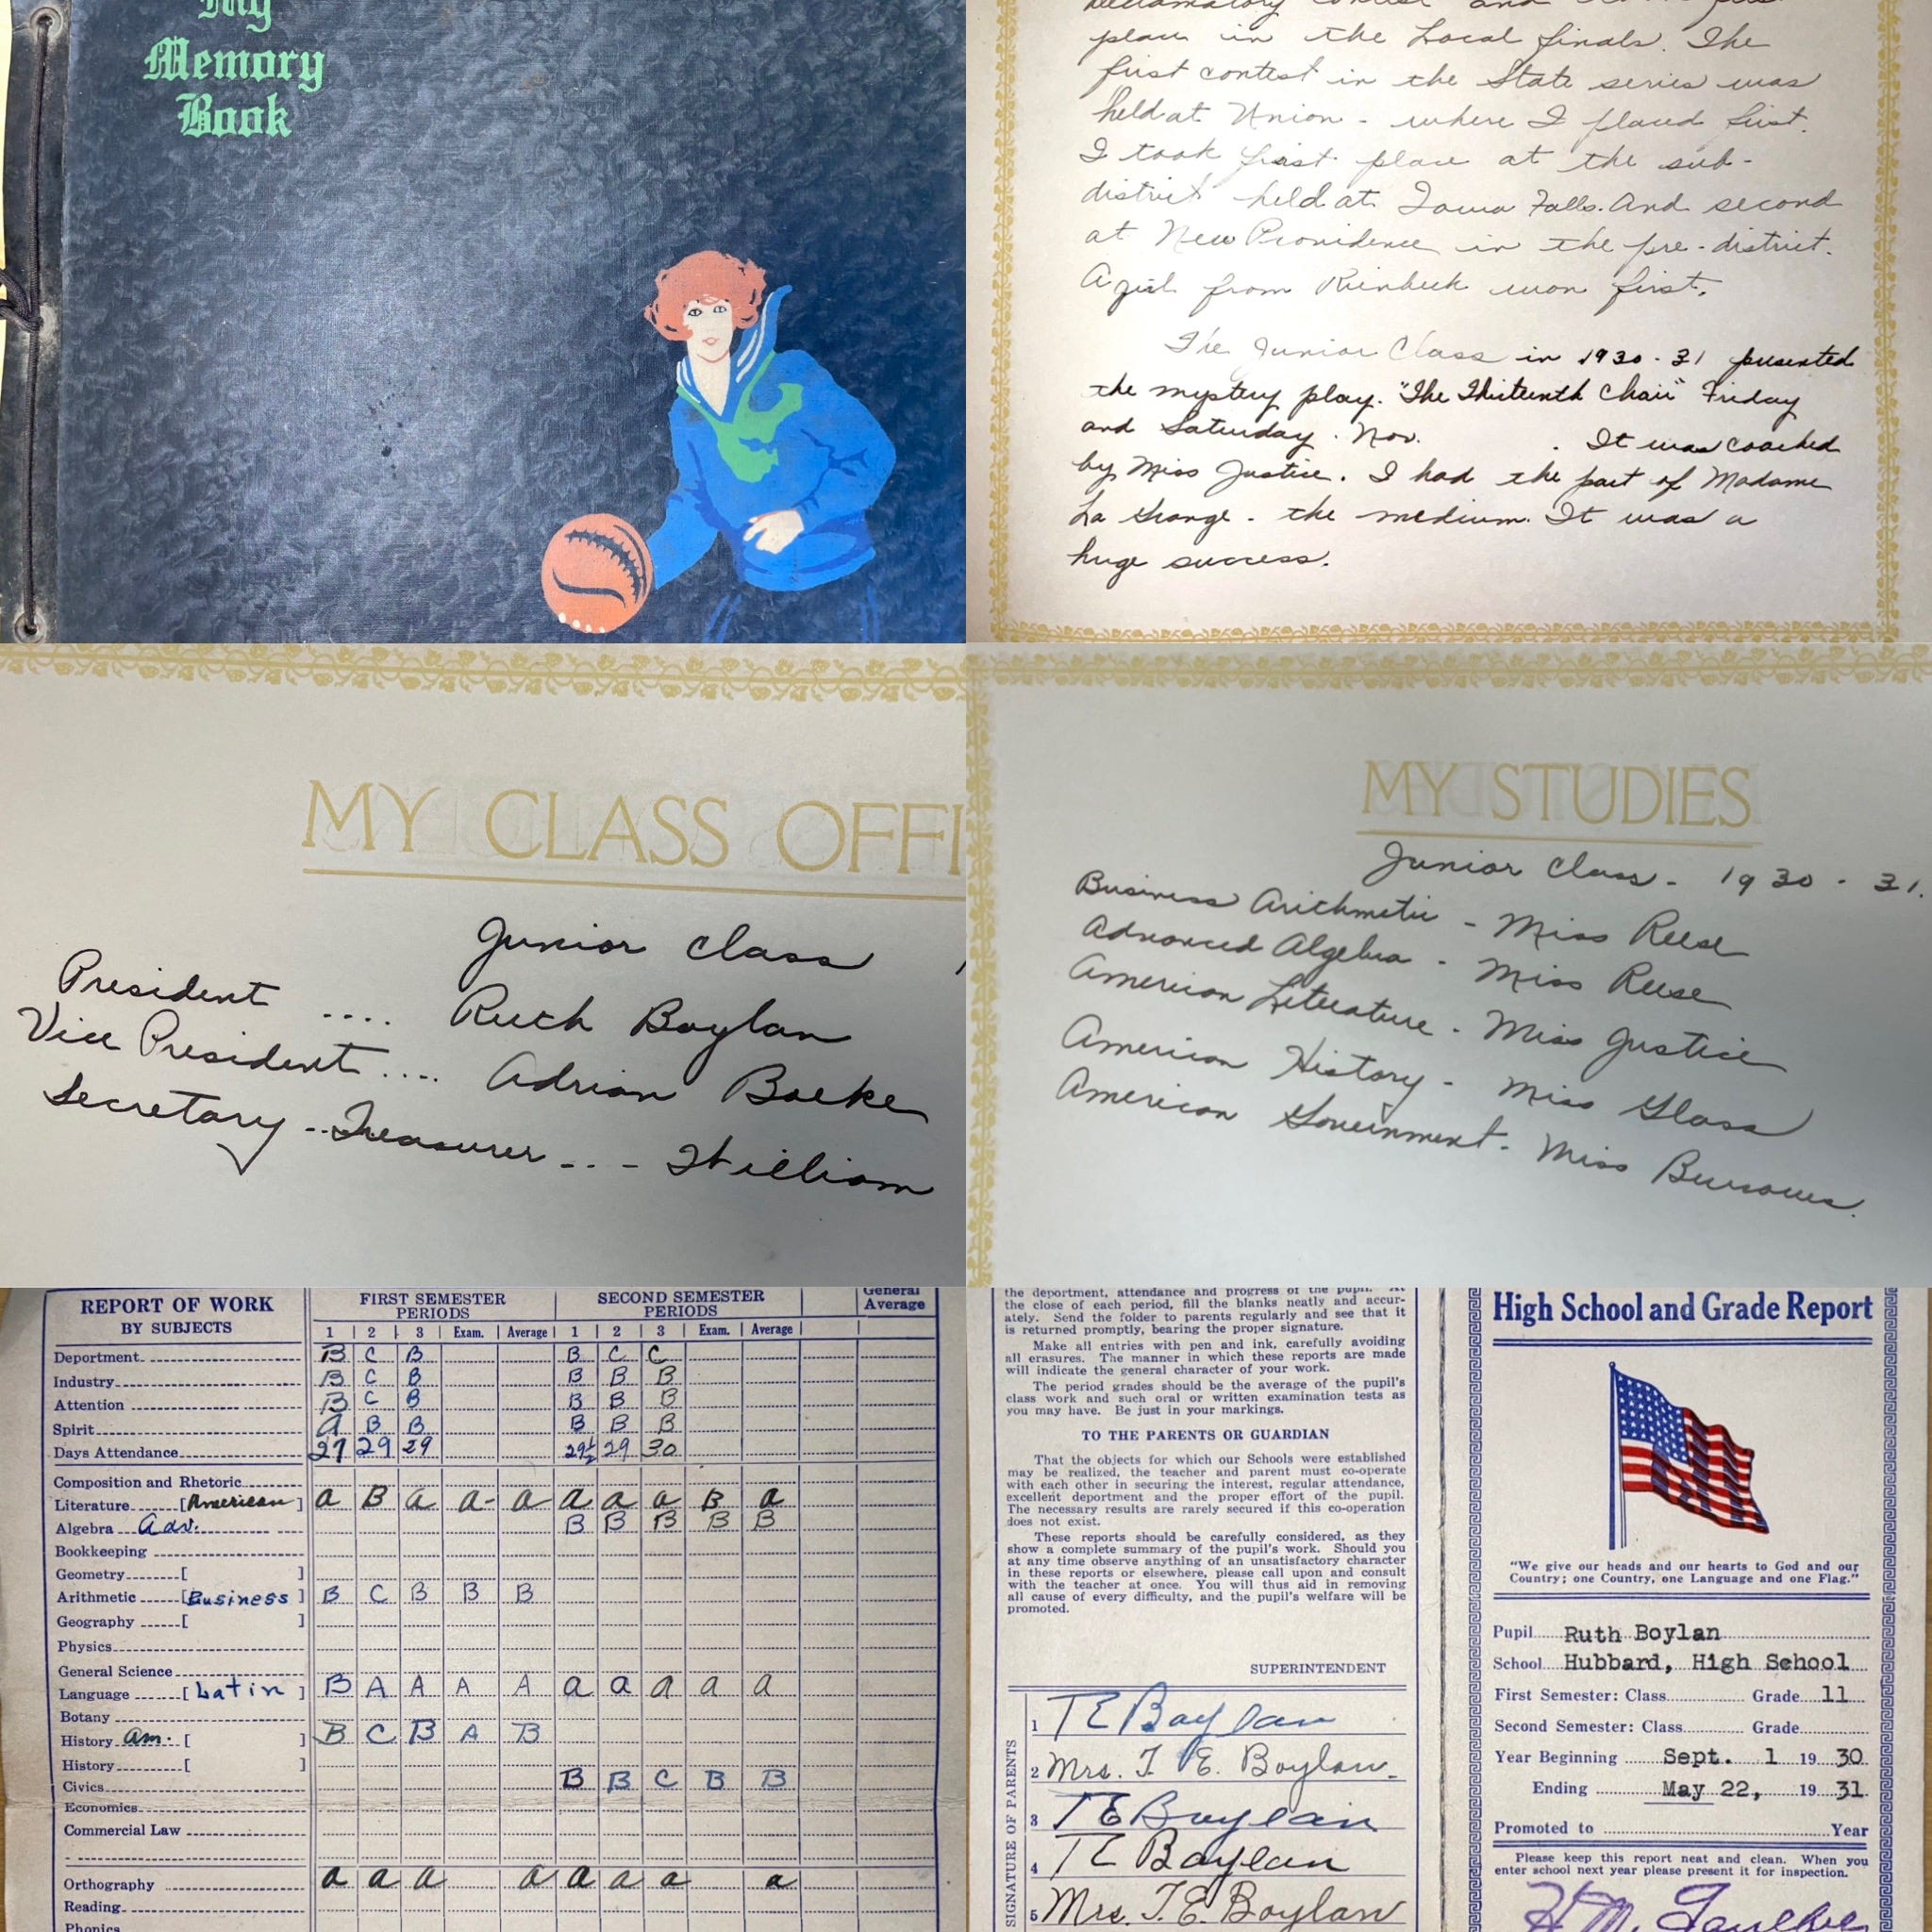 My
Memory
Book
place in the Local finals. The
first contest in the State series was
held at Union - where I placed first.
I took first place at the sub-
district held at Iowa Falls. And second
at New Providence in the pre-district.
A girl from Rienbeck won first.
The Junior Class in 1930-31 presented
the mystery play. "The Thirteenth Chair" Friday
and Saturday. Nov. . It was coached
by Miss Justice. I had the part of Madame
La Grange - the medium. It was a
huge success.
MY CLASS OFFI
Junior Class
President .... Ruth Boylan
Vice President .... Adrian Boeke
Secretary -- Treasurer --- William
MY STUDIES
Junior Class - 1930 - 31.
Business Arithmetic - Miss Reese
Advanced Algebra - Miss Reese
American Literature - Miss Justice
American History - Miss Glass
American Government - Miss Burrows.
REPORT OF WORK
BY SUBJECTS
FIRST SEMESTER
PERIODS
SECOND SEMESTER
PERIODS
General
Average
1 2 3 Exam. Average 1 2 3 Exam. Average
Department B C B B C C
Industry B C B B B B
Attention B C B B B B
Spirit A B B B B B
Days Attendance 27 29 29 29½ 29 30
Composition and Rhetoric
Literature [American] a B a a- a a a a B a
Algebra Adv. B B B B B
Bookkeeping
Geometry [ ]
Arithmetic [Business] B C B B B
Geography [ ]
Physics
General Science
Language [Latin] B A A A A a a a a a
Botany
History Am. [ ] B C B A B
History [ ]
Civics B B C B B
Economics
Commercial Law
Orthography a a a a a a a a
Reading
Phonics
the department, attendance and progress of the pupil. At
the close of each period, fill the blanks neatly and accur-
ately. Send the folder to parents regularly and see that it
is returned promptly, bearing the proper signature.
Make all entries with pen and ink, carefully avoiding
all erasures. The manner in which these reports are made
will indicate the general character of your work.
The period grades should be the average of the pupil's
class work and such oral or written examination tests as
you may have. Be just in your markings.
TO THE PARENTS OR GUARDIAN
That the objects for which our Schools were established
may be realized, the teacher and parent must co-operate
with each other in securing the interest, regular attendance,
excellent department and the proper effort of the pupil.
The necessary results are rarely secured if this co-operation
does not exist.
These reports should be carefully considered, as they
show a complete summary of the pupil's work. Should you
at any time observe anything of an unsatisfactory character
in these reports or elsewhere, please call upon and consult
with the teacher at once. You will thus aid in removing
all cause of every difficulty, and the pupil's welfare will be
promoted.
SUPERINTENDENT
SIGNATURE OF PARENTS
1 T E Boylan
2 Mrs. T. E. Boylan.
3 T E Boylan
4 T E Boylan
5 Mrs. T. E. Boylan
High School and Grade Report
"We give our heads and our hearts to God and our
Country; one Country, one Language and one Flag."
Pupil Ruth Boylan
School Hubbard, High School
First Semester: Class Grade 11
Second Semester: Class Grade
Year Beginning Sept. 1 19 30
Ending May 22, 19 31
Promoted to Year
Please keep this report neat and clean. When you
enter school next year please present it for inspection.